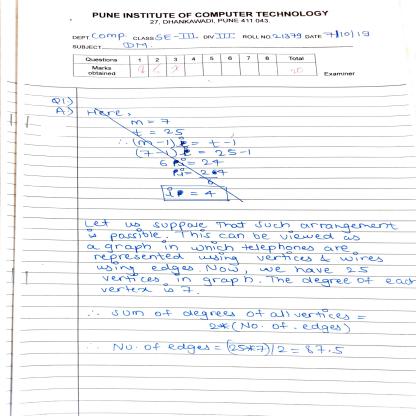 PUNE INSTITUTE OF COMPUTER TECHNOLOGY
27, DHANKAWADI, PUNE 411 043.
DEPT Comp. CLASS SE-III DIV III ROLL NO. 21379 DATE 7/10/19
SUBJECT DM.
Questions 1 2 3 4 5 6 7 8 Total
Marks obtained 20 Examiner
Q1)
A) Here,
m = 7
t = 25
∴ (m-1)i = t-1
(7-1)i = 25-1
6 i = 24
i = 24
6
i = 4
Let us suppose that such arrangement
is possible. This can be viewed as
a graph in which telephones are
represented using vertices & wires
using edges. Now, we have 25
vertices in graph. The degree of each
vertex is 7.
∴ Sum of degrees of all vertices =
2*(No. of. edges)
∴ No. of edges = (25*7)/2 = 87.5